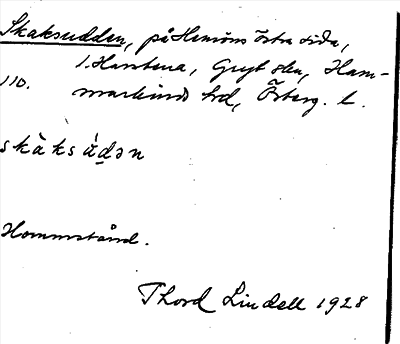 Skaksudden, på Hemöns östra sida,
1. Harstena, Gryt skn, Ham-
110. markinds hd, Österg. l.
skàksúdən
Hommstånd.
Thord Lindell 1928